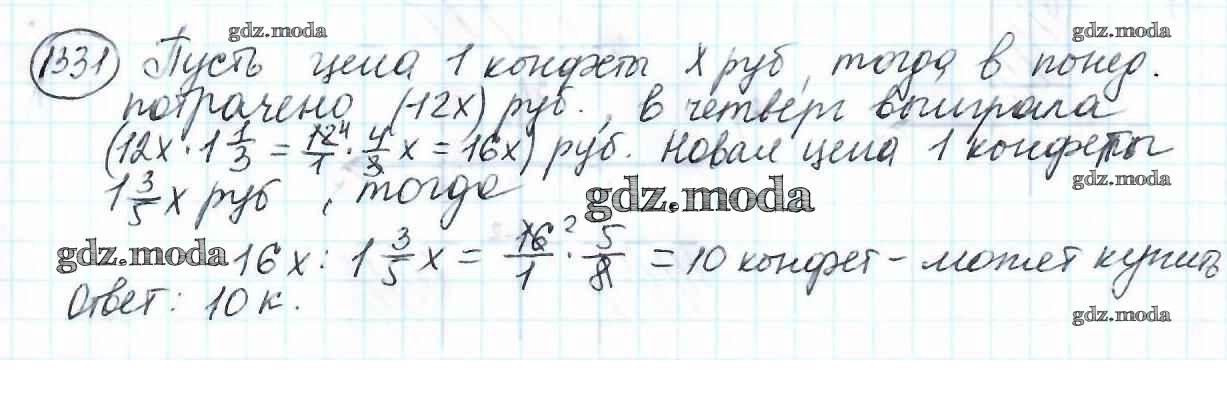 gdz.moda gdz.moda
1331 Пусть цена 1 конфеты x руб, тогда в понед.
потрачено (12x) руб., в четверг выиграла
(12x · 1 1/3 = 12/1 · 4/3 x = 16x) руб. Новая цена 1 конфеты
gdz.moda
1 3/5 x руб, тогда
gdz.moda
gdz.moda
16x : 1 3/5 x = 16/1 · 5/8 = 10 конфет - может купить
Ответ: 10 к.
gdz.moda